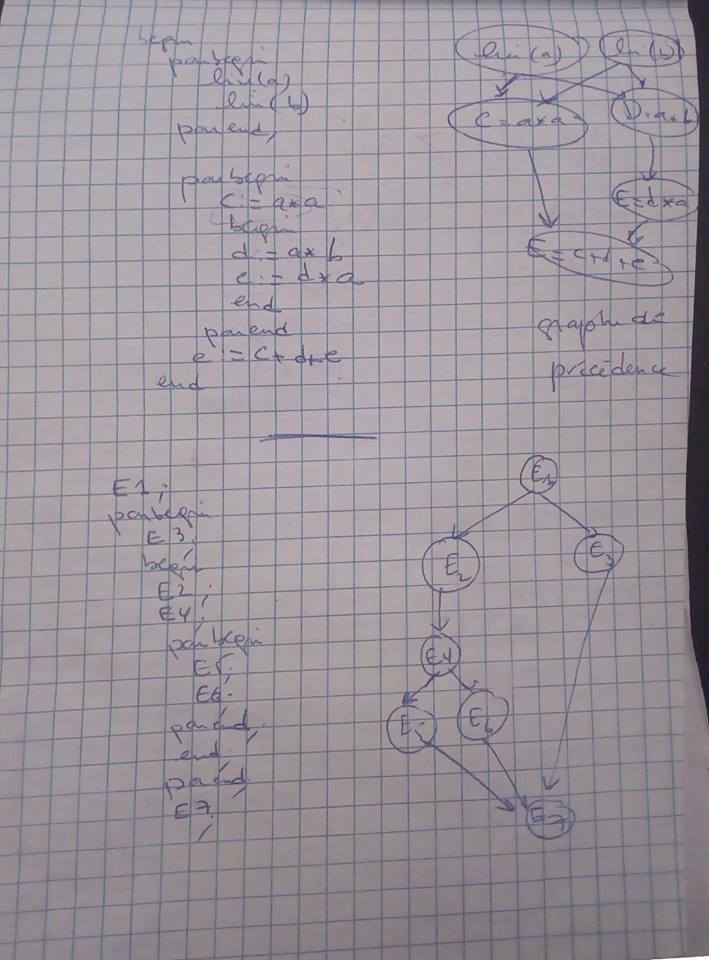 begin
parbegin
lire(a)
lire(b)
parend;
parbegin
c := a*a
begin
d := a*b
e := d*a
end
parend
e := c+d+e
end
lire(a)
lire(b)
C=a*a
D=a*b
E=d*a
E=c+d+e
graphe de
précédence
E1;
parbegin
E3;
begin
E2;
E4;
parbegin
E5;
E6;
parend;
end;
parend
E7;
E1
E2
E3
E4
E5
E6
E7